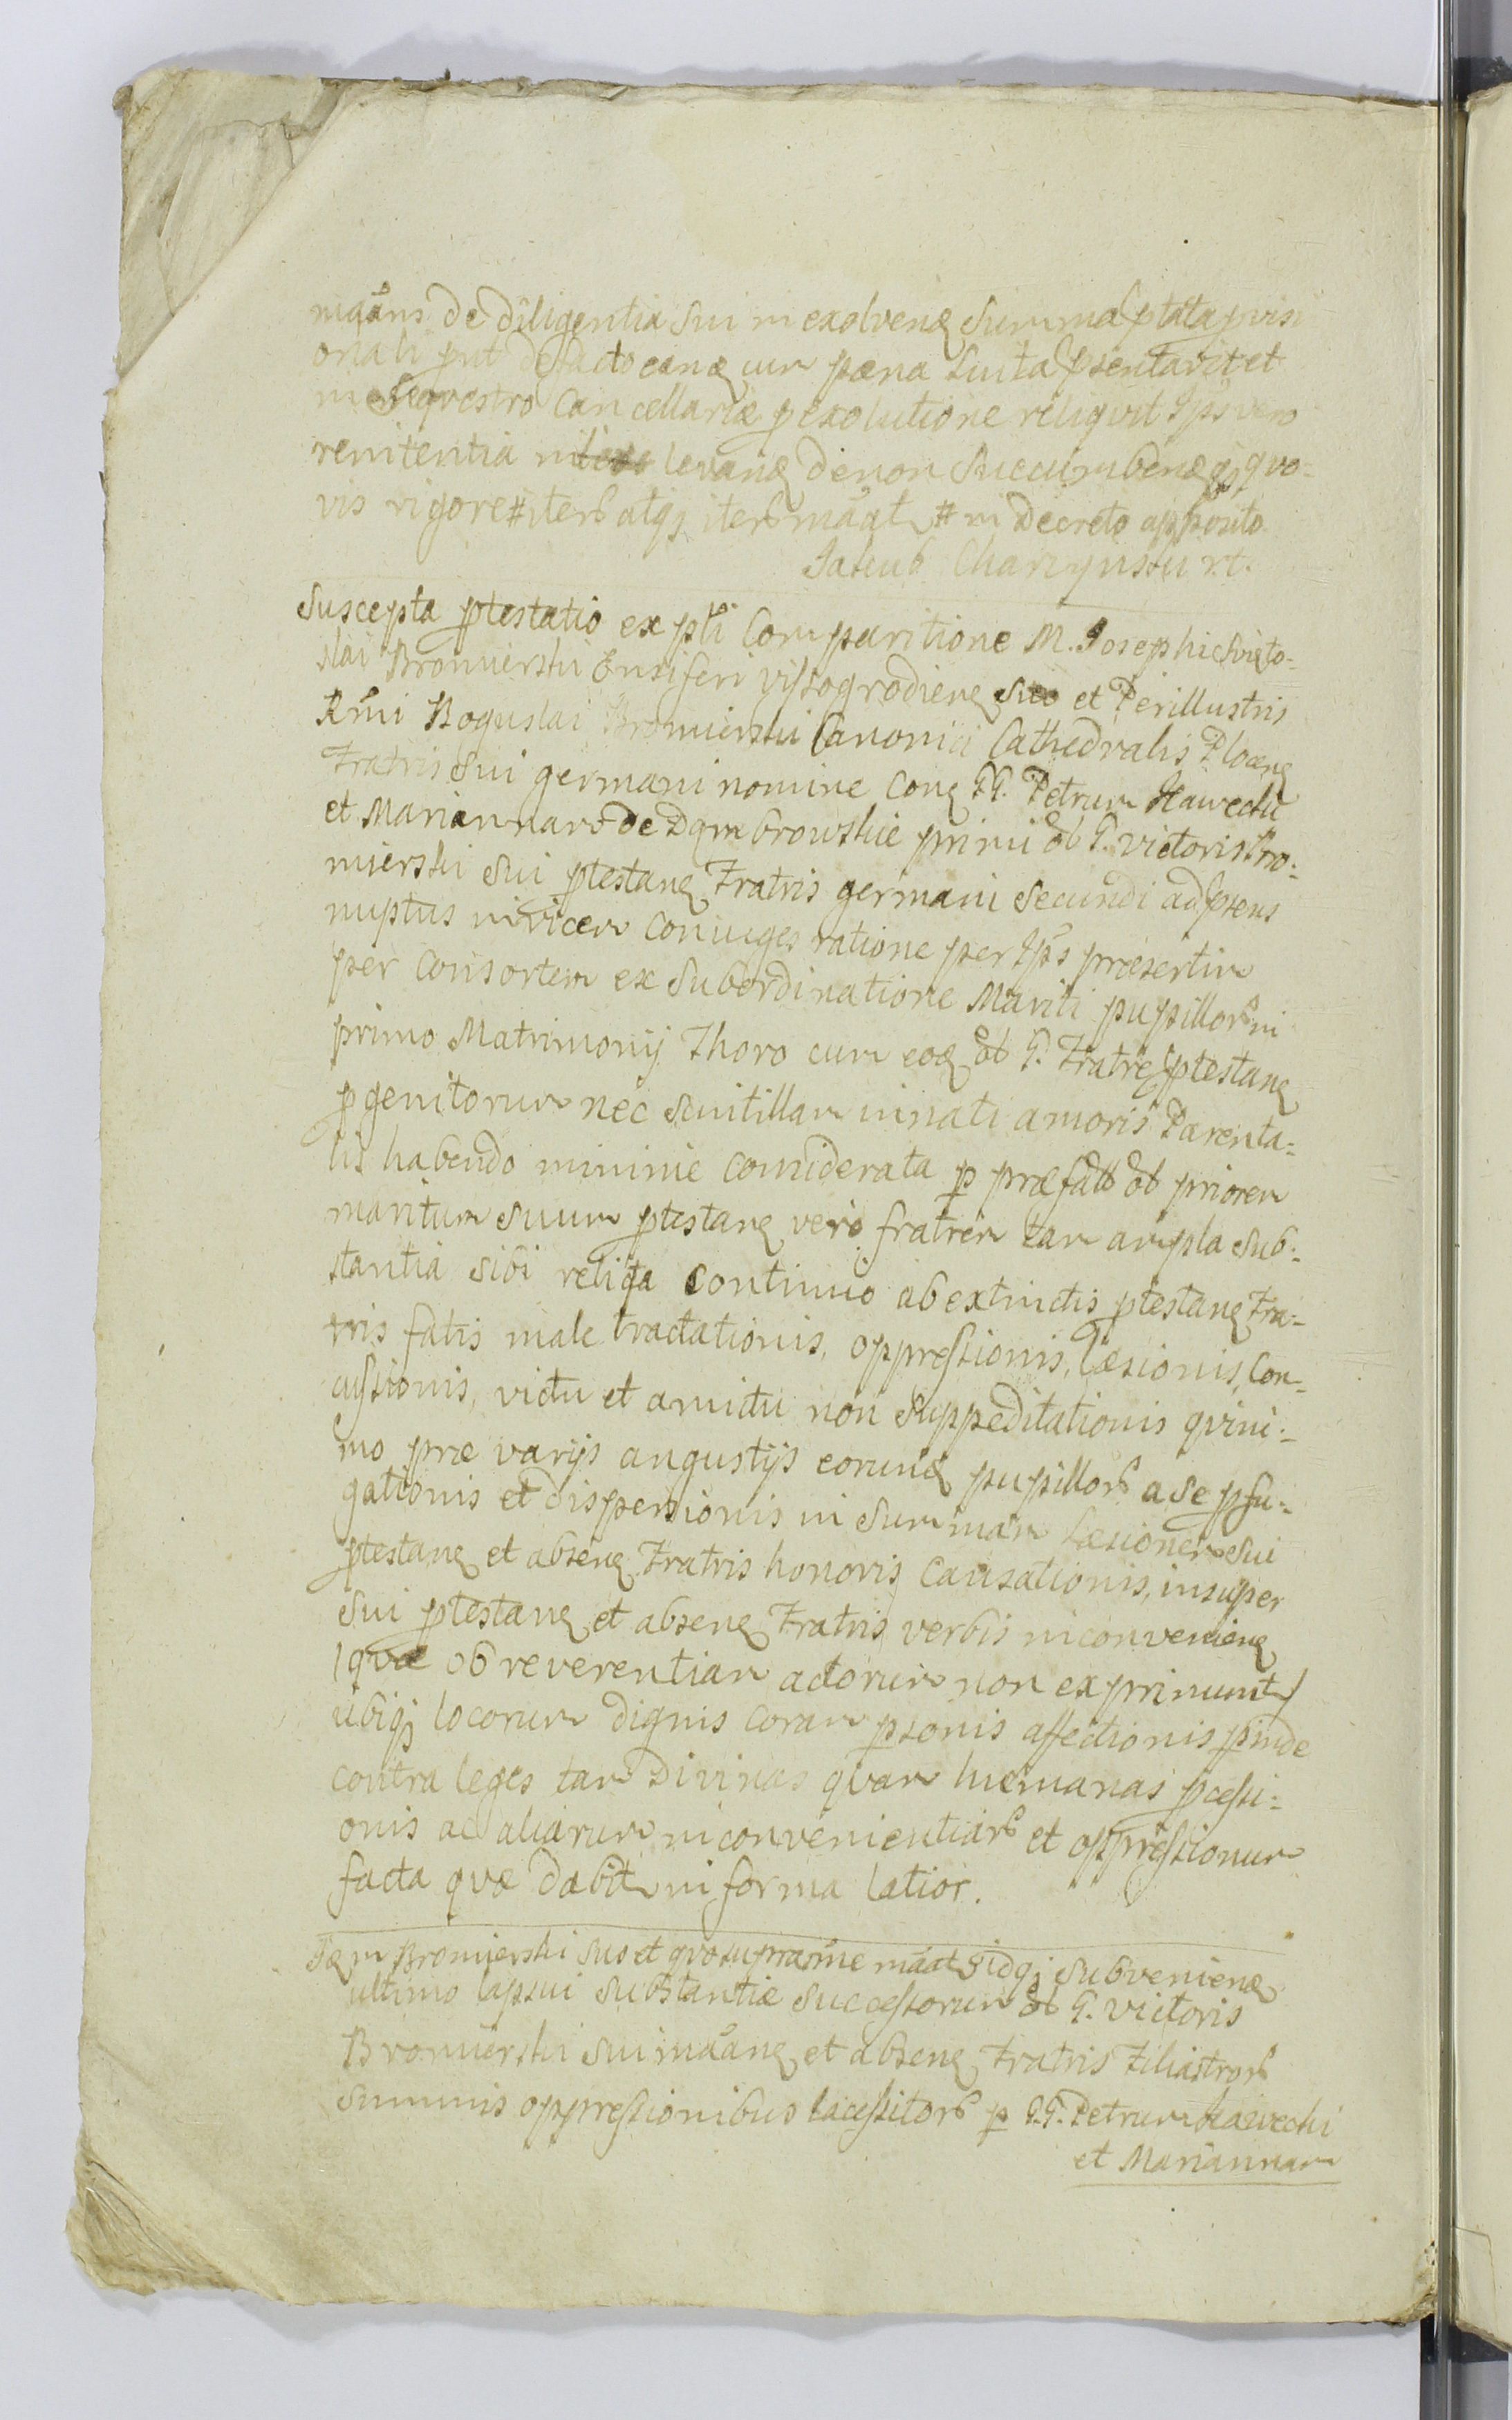 mãns de diligentia sui in exolvenđ summa ptata pvisi
onali put de facto eanđ cum pæna luita psentavit et
in Seqvestro Cancellariæ p exolutione reliqvit Ips vero
renitentia in levanđ de non succumbenđ qs qvo-
vis rigore # iterb atqs iterb mãat # in decreto apposito
Jakub Charzynski rt.
Suscepta ptestatio ex psti Comparitione M. Josephi Swięto-
slai Bromierski Ensiferi Vissogrodienę suo et Perillustris
Rmi Boguslai Bromierski Canonici Cathedralis Plocenę
Fratris sui germani nomine Conę GG. Petrum Hawecki
et Mariannam de Dąmbrowskie primi ol G. Victoris Bro-
mierski sui ptestanę Fratris germani secundi ad psens
nuptus invicem coniuges ratione per Ips præsertim
per Consortem ex subordinatione Mariti pupillorb in
primo Matrimonij Thoro cum eođ ol G. Fratre ptestanę
pgenitorum nec scintillam innati amoris Parenta-
lis habendo minime considerata p præfatt ol priorem
maritum suum ptestanę vero fratrem tam ampla sub-
stantia sibi relicta continuo ab extinctis ptestanę Fra-
tris fatis male tractationis, oppressionis, læsionis, Con-
cussionis, victu et amictu non suppeditationis qvini-
mo præ varijs angustijs eorunđ pupillorb a se pfu-
gationis et dispersionis in summam læsionem sui
ptestanę et absenę Fratris honoris Causationis, insuper
sui ptestanę et absenę Fratris verbis inconvenienę
/qvæ ob reverentiam actorum non exprimunt/
ubiqs locorum dignis coram psonis affectionis pinde
contra leges tam Divinas qvam humanas pcessi-
onis ac aliarum inconvenientiarb et oppressionum
facta qvæ dabit in forma latior.
Iđem Bromierski suo et qvo supra nõie mãat qidqs subvenienđ
ultimo lapsui substantiæ successorum ol G. Victoris
Bromierski sui mãanę et absenę Fratris Filiastrorb
summis oppressionibus lacessitorb p GG. Petrum Hawecki
et Mariannam